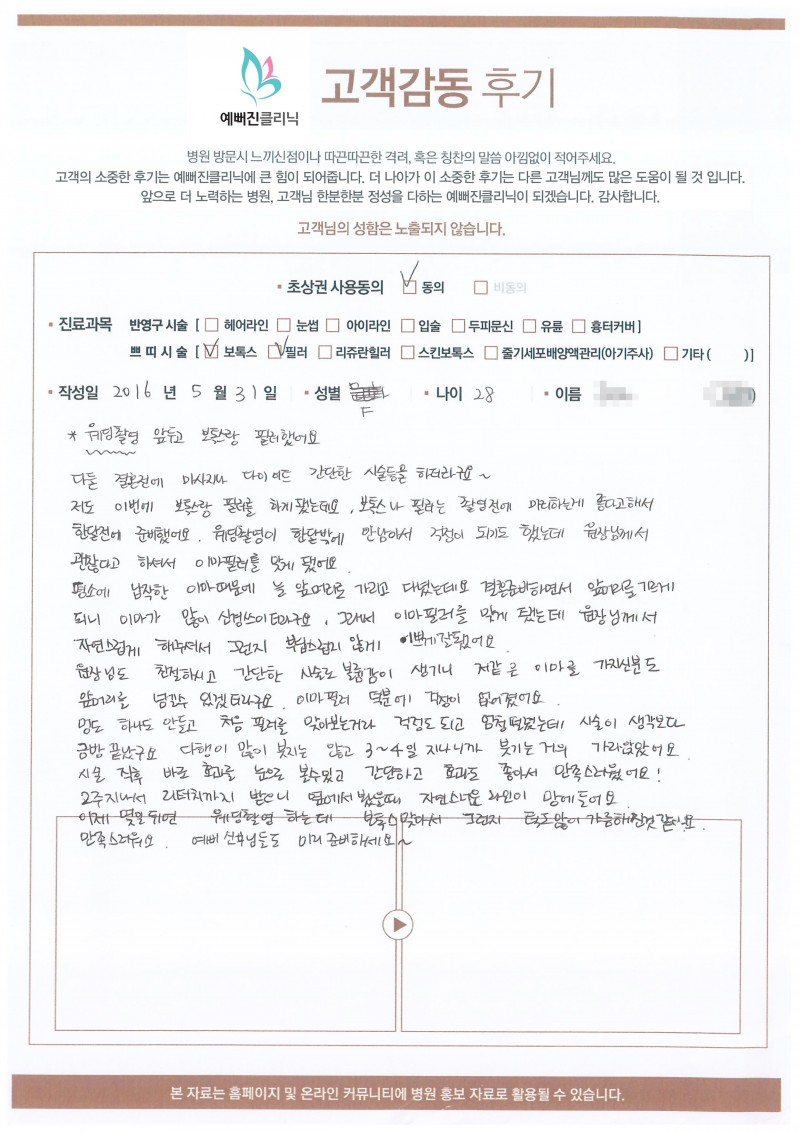 예뻐진클리닉
고객감동 후기
병원 방문시 느끼신점이나 따끈따끈한 격려, 혹은 칭찬의 말씀 아낌없이 적어주세요.
고객의 소중한 후기는 예뻐진클리닉에 큰 힘이 되어줍니다. 더 나아가 이 소중한 후기는 다른 고객님께도 많은 도움이 될 것 입니다.
앞으로 더 노력하는 병원, 고객님 한분한분 정성을 다하는 예뻐진클리닉이 되겠습니다. 감사합니다.
고객님의 성함은 노출되지 않습니다.
초상권 사용동의 동의 비동의
진료과목 반영구 시술 [ 헤어라인 눈썹 아이라인 입술 두피문신 유륜 흉터커버 ]
쁘띠시술 [ 보톡스 필러 리쥬란힐러 스킨보톡스 줄기세포배양액관리(아기주사) 기타 ( )]
작성일 2016 년 5 월 31 일 성별 F 나이 28 이름
* 웨딩촬영 앞두고 보톡스랑 필러했어요
다들 결혼전에 마사지나 다이어트 간단한 시술등을 하더라구요~
저도 이번에 보톡스랑 필러를 하게 됐는데요, 보톡스나 필러는 촬영전에 미리하는게 좋다고해서
한달전에 준비했어요. 웨딩촬영이 한달밖에 안남아서 걱정이 되기도 했는데 원장님께서
괜찮다고 하셔서 이마필러를 맞게 됐어요.
평소에 납작한 이마때문에 늘 앞머리로 가리고 다녔는데요 결혼준비하면서 앞머리를 기르게
되니 이마가 많이 신경쓰이더라구요. 그래서 이마필러를 맞게 됐는데 원장님께서
자연스럽게 해주셔서 그런지 부담스럽지 않게 이쁘게 잘됐어요
원장님도 친절하시고 간단한 시술로 볼륨감이 생기니 저같은 이마를 가지신분도
앞머리를 넘길수 있겠더라구요. 이마필러 덕분에 걱정이 없어졌어요
멍도 하나도 안들고 처음 필러를 맞아보는거라 걱정도 되고 엄청 떨렸는데 시술이 생각보다
금방 끝났구요 다행이 많이 붓지는 않고 3~4일 지나니까 붓기는 거의 가라앉았어요.
시술 직후 바로 효과를 눈으로 볼수있고 간단하고 효과도 좋아서 만족스러웠어요!
2주지나서 리터치까지 받으니 옆에서 봤을때 자연스러운 라인이 맘에들어요.
이제 몇일뒤면 웨딩촬영 하는데 보톡스 맞아서 그런지 턱도 많이 갸름해진것 같아요.
만족스러워요. 예비신부님들도 미리 준비하세요~
본 자료는 홈페이지 및 온라인 커뮤니티에 병원 홍보 자료로 활용될 수 있습니다.